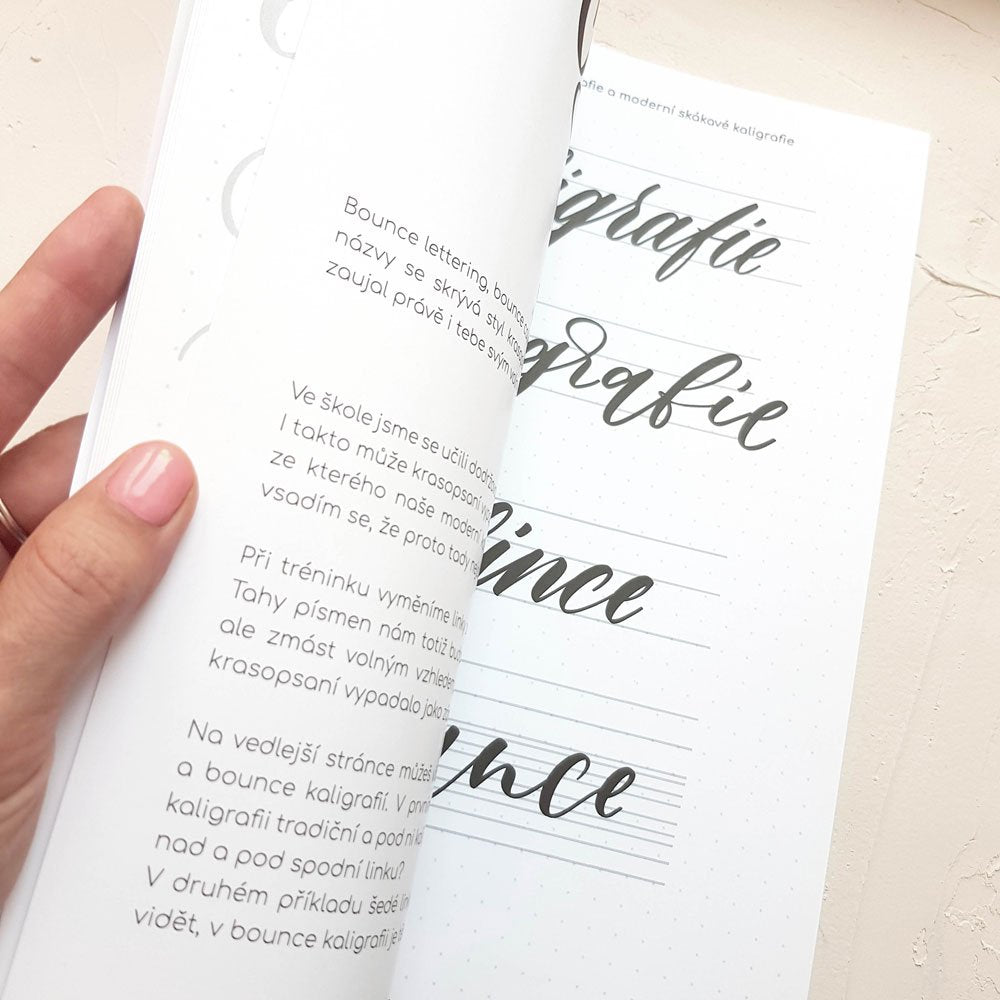 Bounce lettering, bounce
názvy se skrývá styl
zaujal právě i tebe svým
Ve škole jsme se učili
I takto může krasopsaní
ze kterého naše moderní
vsadím se, že proto tady
Při tréninku vyměníme linky
Tahy písmen nám totiž
ale zmást volným
krasopsaní vypadalo jako
Na vedlejší stránce můžeš
a bounce kaligrafií. V
kaligrafii tradiční a pod ní
nad a pod spodní linku?
V druhém příkladu šedé
vidět, v bounce kaligrafii je
a moderní skákavé kaligrafie
igrafie
grafie
ince
unce